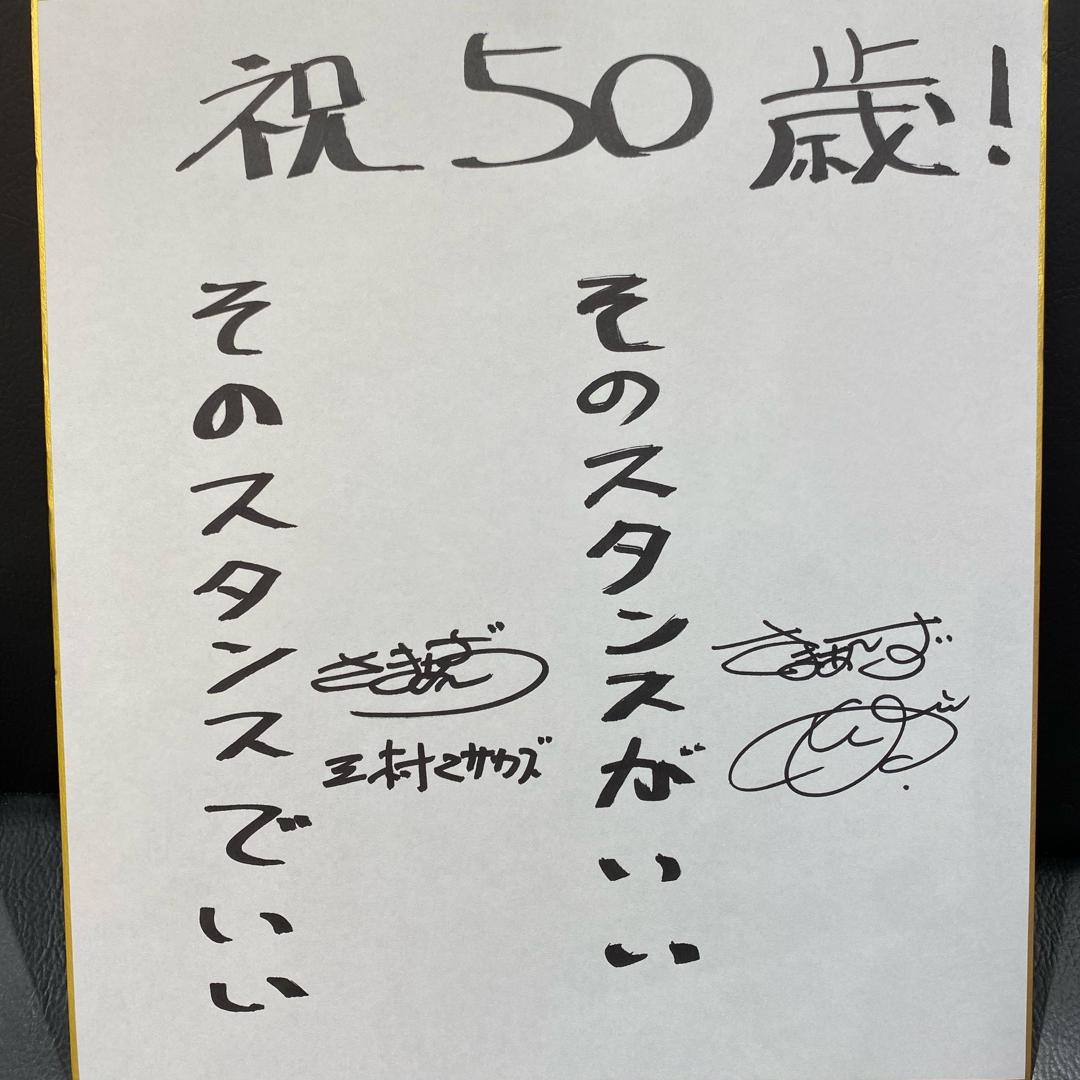 祝50歳!
そのスタンスがいい
さまぁ〜ず
そのスタンスでいい
さまぁ〜ず
三村マサカズ